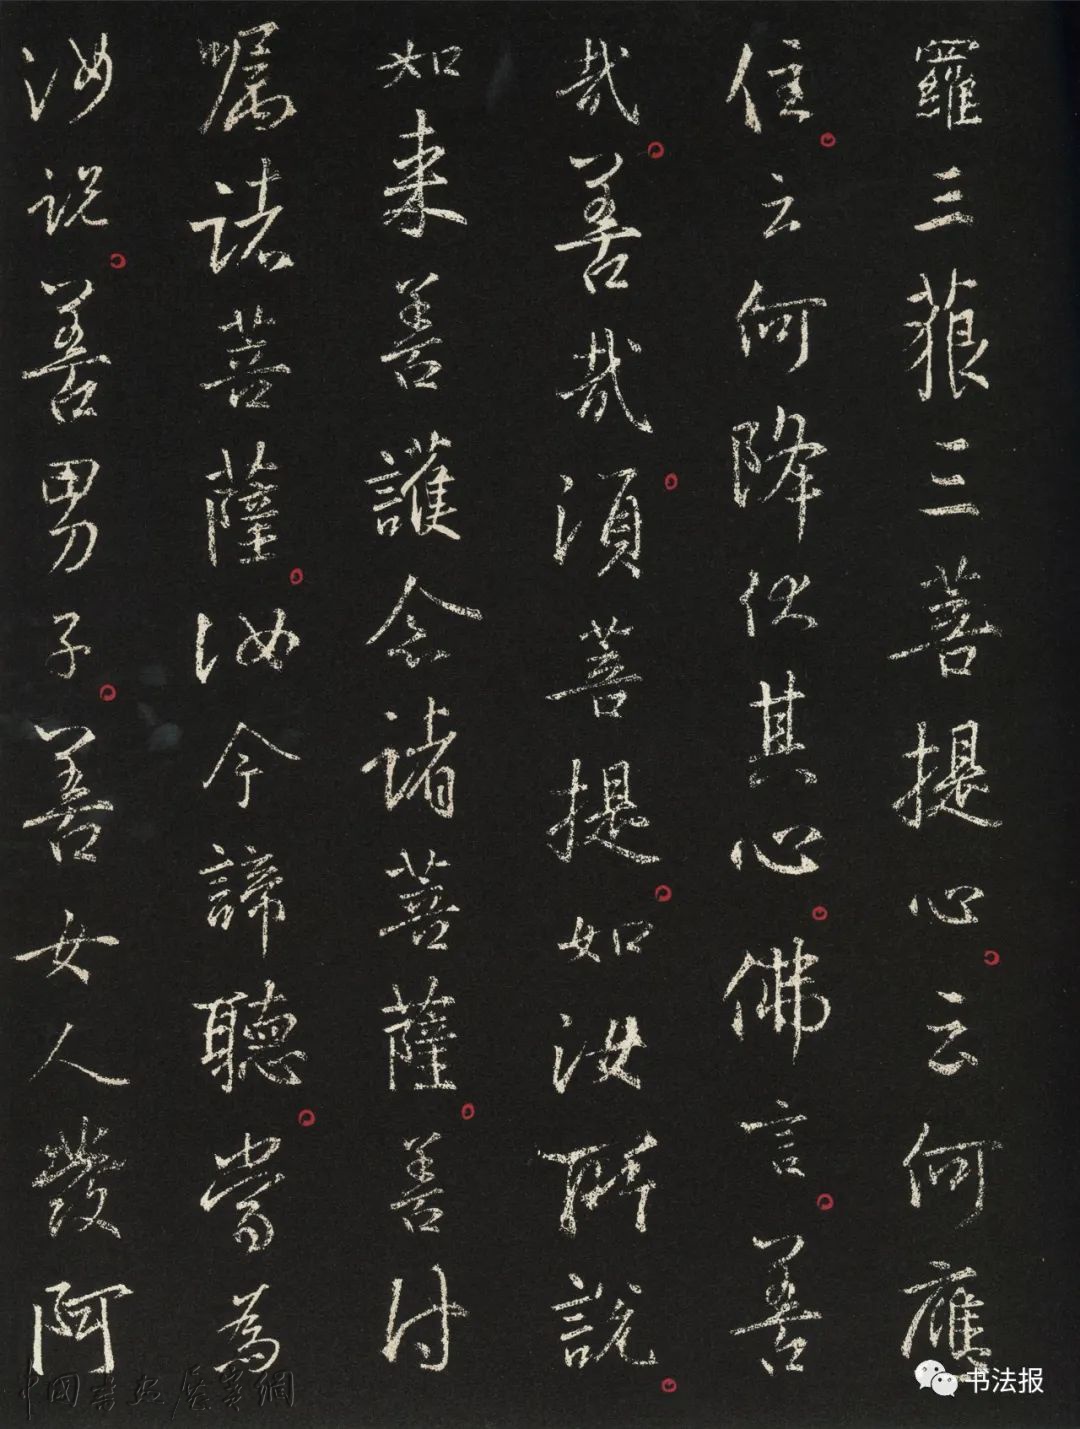 羅三藐三菩提心。云何應
住。云何降伏其心。佛言。善
哉。善哉。須菩提。如汝所說。
如来善護念諸菩薩。善付
嘱諸菩薩。汝今諦聽。當為
汝說。善男子。善女人發阿
中国书画展赛網
书法报